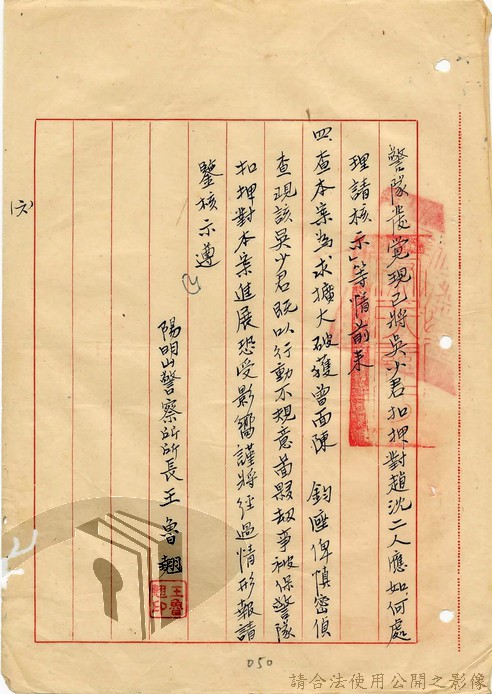 警隊發覺現已將吳少君扣押對趙沈二人應如何處
理請核示」等情前來
四、查本案為求擴大破獲曾面陳　鈞座俾慎密偵
查現該吳少君既以行動不規意圖縣劫事被保警隊
扣押對本案進展恐受影響謹將經過情形報請
鑒核示遵
陽明山警察所所長王魯翹
王魯翹印
(六)
050
請合法使用公開之影像